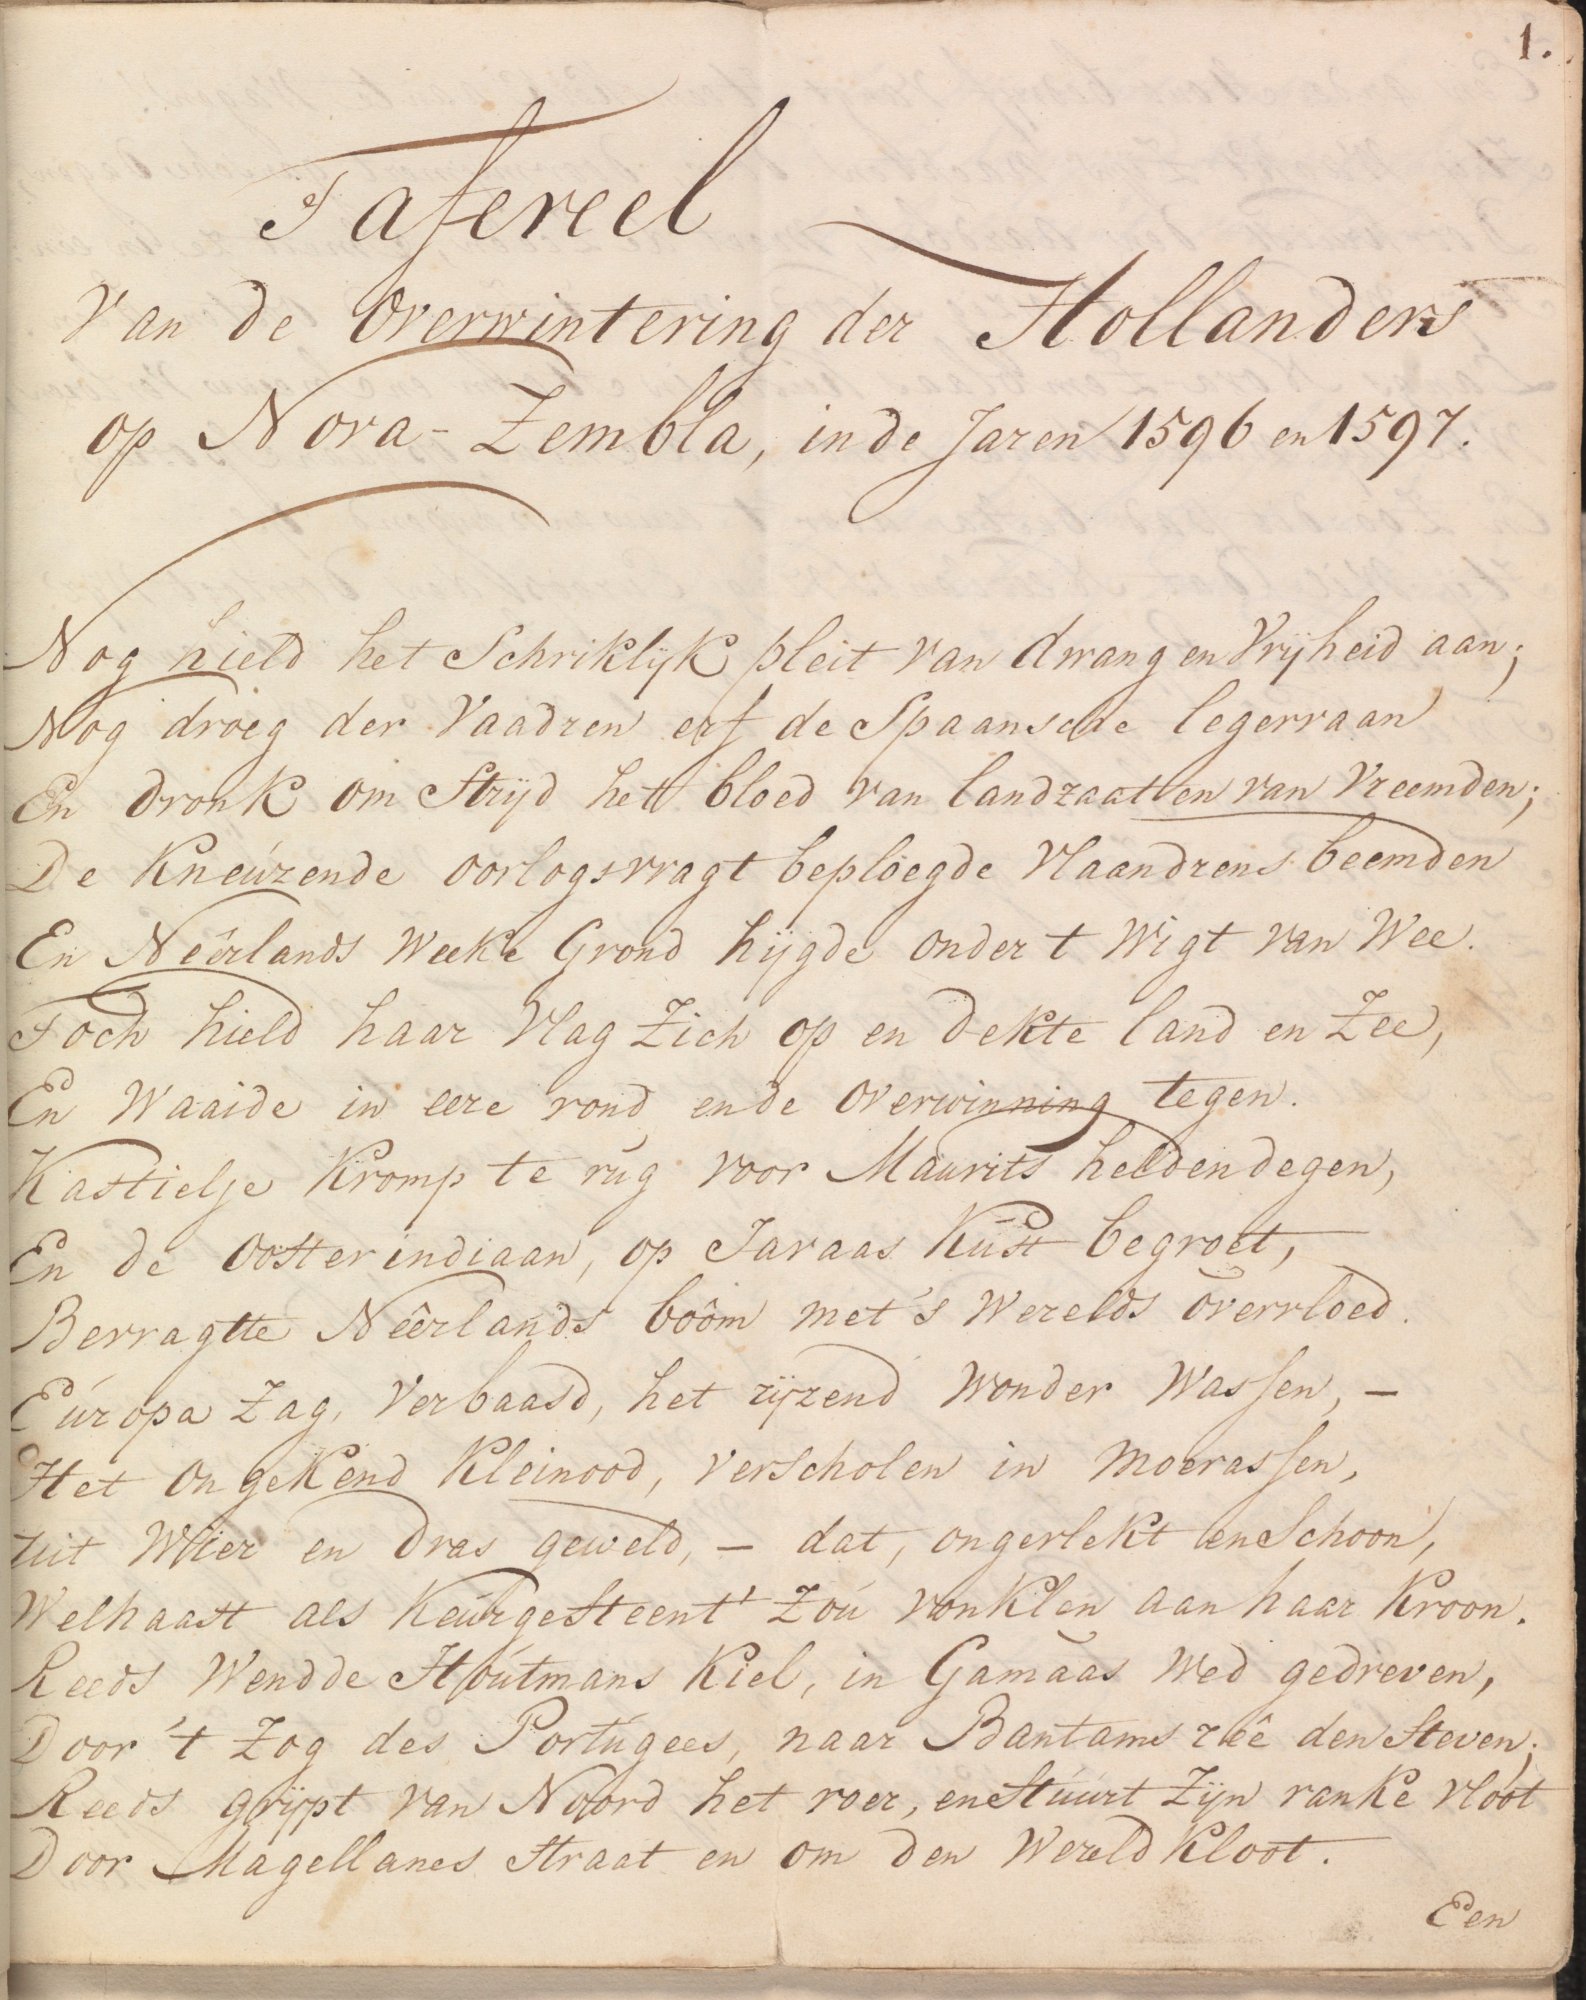 1.
Tafereel
Van de Overwintering der Hollanders
op Nova-Zembla, in de Jaren 1596 en 1597.
Nog hield het Schriklijk pleit van dwang en Vrijheid aan;
Nog droeg der Vaadren erf de Spaansche legervaan
En dronk om Strijd het bloed van landzaatten van Vreemden;
De Kneúzende oorlogsvragt beploegde Vlaandrens beemden
En Neêrlands Weeke Grond hijgde onder t Wigt van Wee.
Toch hield haar Vlag Zich op en dekte land en Zee,
En Waaide in eere rond en de Overwinning tegen.
Kastielje Kromp te rúg voor Maurits heldendegen,
En de Oosterindiaan, op Javaas Kúst begroet,
Bevragtte Neêrlands boôm met 's Werelds overvloed.
Eúropa Zag, Verbaasd, het rijzend Wonder Wassen, —
Het Ongekend Kleinood, verscholen in Moerassen,
Uit Wier en dras geweld, — dat, ongevlekt en Schoon,
Welhaast als Keúrgesteent' Zoú vonklen aan haar Kroon.
Reeds Wendde Hoútmans Kiel, in Gamaas Wed gedreven,
Door 't Zog des Portúgees, naar Bantams reê den Steven;
Reeds grijpt van Noord het roer, en Stúúrt Zijn ranke Vloot
Door Magellanes Straat en om den Wereld Kloot.
Een